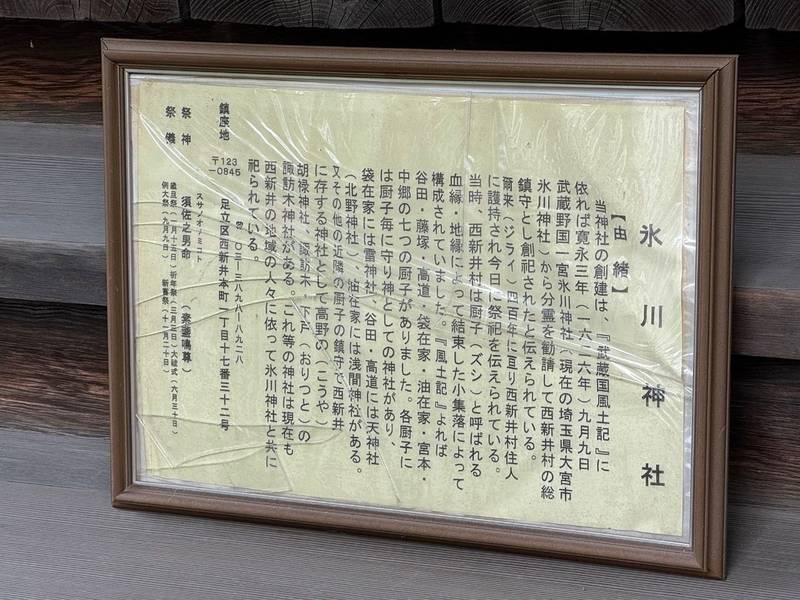 氷川神社
【由緒】
当神社の創建は、『武蔵国風土記』に
依れば寛永三年（一六二六年）九月九日
武蔵野国一宮氷川神社（現在の埼玉県大宮市
氷川神社）から分霊を勧請して西新井村の総
鎮守とし創祀されたと伝えられている。
爾来（ジライ）四百年に亘り西新井村住人
に護持され今日に祭祀を伝えられている。
当時、西新井村は厨子（ズシ）と呼ばれる
血縁・地縁によって結束した小集落によって
構成されていました。『風土記』よれば
谷田・藤塚・高道・袋在家・油在家・宮本・
中郷の七つの厨子がありました。各厨子に
は厨子毎に守り神としての神社があり、
袋在家には雷神社、谷田・高道には天神社
（北野神社）、油在家には浅間神社がある。
又その他の近隣の厨子の鎮守で西新井
に存する神社として高野の（こうや）
胡禄神社、諏訪木・下戸（おりっと）の
諏訪木神社がある。これ等の神社は現在も
西新井の地域の人々に依って氷川神社と共に
祀られている。
鎮座地 〒123-0845 足立区西新井本町二丁目十七番三十二号
☎〇三-三八九八-八九二八
スサノオノミコト
祭神 須佐之男命（素盞嗚尊）
祭儀 歳旦祭（一月十五日）祈年祭（三月三日）大祓式（六月三十日）
例大祭（九月九日） 新嘗祭（十一月二十日）